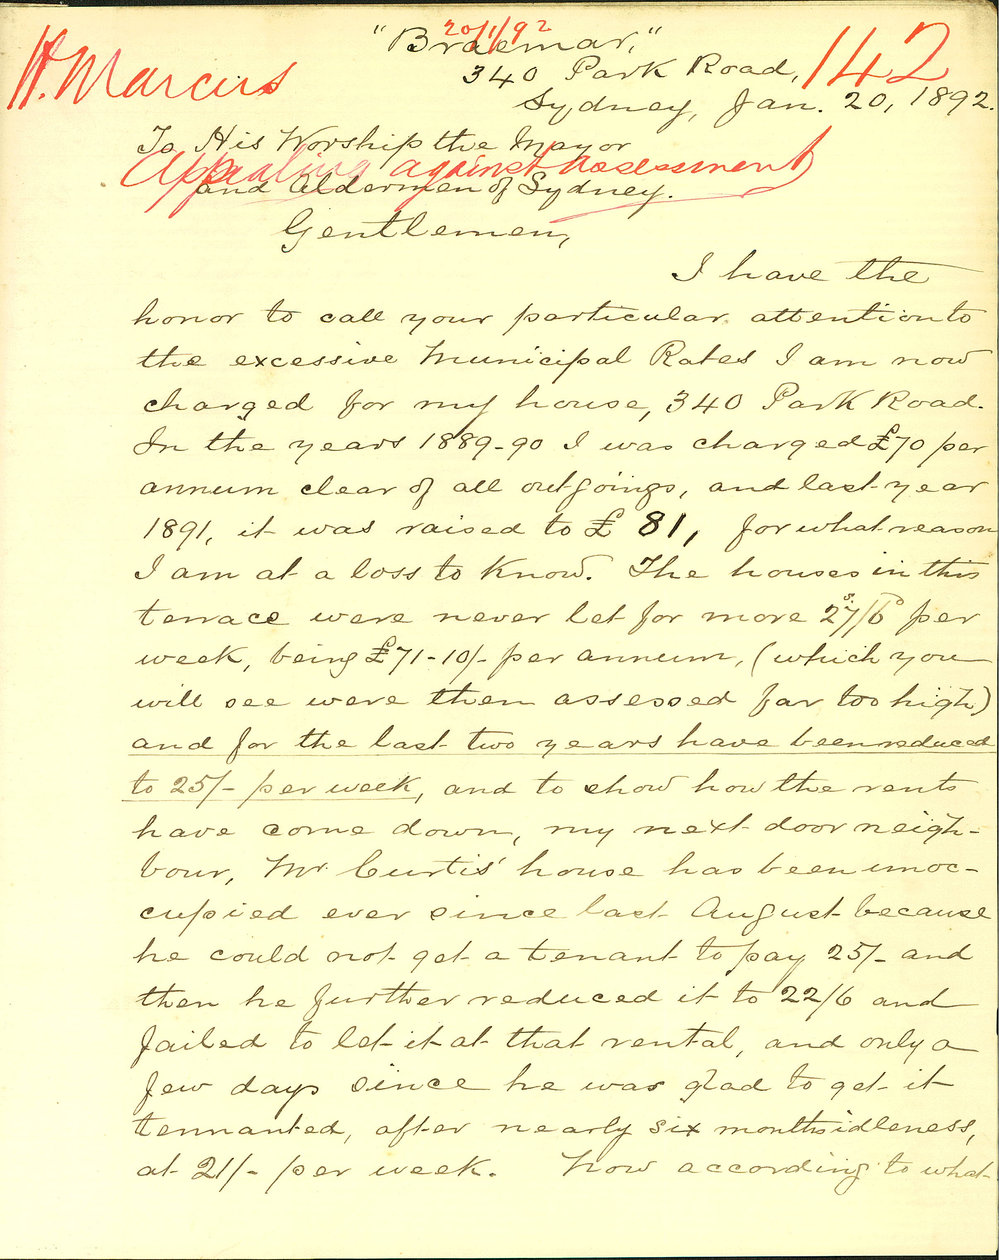 20/1/92
"Braemar,"
H. Marcus
142
340 Park Road,
Sydney, Jan. 20, 1892.
To His Worship the Mayor
Appealing against assessment
and Aldermen of Sydney.
Gentlemen,
I have the
honor to call your particular attention to
the excessive Municipal Rates I am now
charged for my house, 340 Park Road.
In the years 1889-90 I was charged £70 per
annum clear of all outgoings, and last year
1891, it was raised to £ 81, for what reason
I am at a loss to know. The houses in this
terrace were never let for more 27/6 per
week, being £71-10/- per annum, (which you
will see were then assessed far too high)
and for the last two years have been reduced
to 25/- per week, and to show how the rents
have come down, my next door neigh-
bour, Mr Curtis' house has been unoc-
cupied ever since last August because
he could not get a tenant to pay 25/- and
then he further reduced it to 22/6 and
failed to let it at that rental, and only a
few days since he was glad to get it
tennanted, after nearly six months idleness,
at 21/- per week. Now according to what